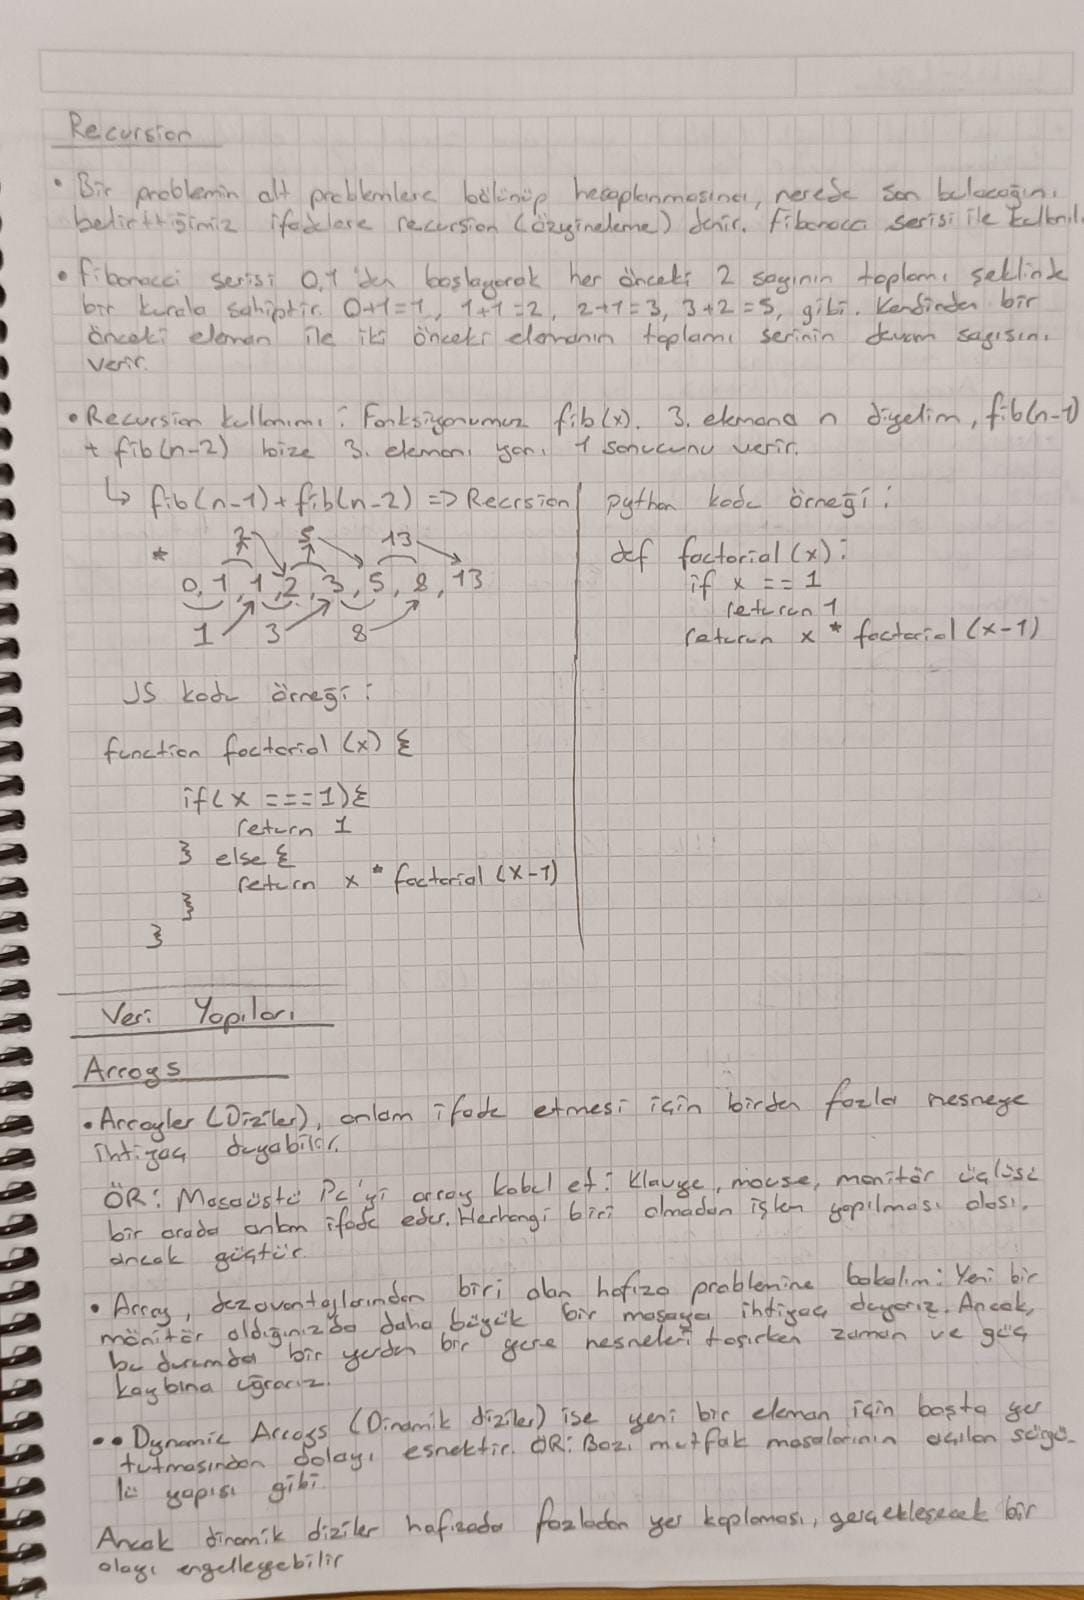 Recursion
• Bir problemin alt problemlere bölünüp hesaplanmasına, nerede son bulacağını
belirttiğimiz ifadelere recursion (özyineleme) denir. Fibonacci serisi ile kullanılı
• Fibonacci serisi 0,1'den başlayarak her önceki 2 sayının toplamı şeklinde
bir kurala sahiptir. 0+1=1, 1+1=2, 2+1=3, 3+2=5, gibi. Kendinden bir
önceki eleman ile iki önceki elemanın toplamı serinin devam sayısını
verir.
• Recursion kullanımı: Fonksiyonumuz fib(x). 3. elemana n diyelim, fib(n-1)
+ fib(n-2) bize 3. elemanı yani 1 sonucunu verir.
↳ fib(n-1)+fib(n-2) => Recrsion
* 2 5 13
0,1,1,2,3,5,8,13
1 3 8
JS kodu örneği:
function factorial (x) {
if(x ===1){
return 1
} else {
return x * factorial (x-1)
}
}
python kodu örneği:
def factorial (x):
if x == 1
returun 1
returun x * factorial (x-1)
Veri Yapıları
Arrays
• Arrayler (Diziler), anlam ifade etmesi için birden fazla nesneye
ihtiyaç duyabilir.
ÖR: Masaüstü Pc'yi array kabul et: Klavye, mouse, monitör üçlüsü
bir arada anlam ifade eder. Herhangi biri olmadan işlem yapılması olası,
ancak güçtür.
• Array, dezavantajlarından biri olan hafıza problemine bakalım: Yeni bir
monitör aldığınızda daha büyük bir masaya ihtiyaç duyarız. Ancak,
bu durumda bir yerden bir yere nesneleri taşırken zaman ve güç
kaybına uğrarız.
•• Dynamic Arrays (Dinamik diziler) ise yeni bir eleman için başta yer
tutmasından dolayı esnektir. ÖR: Bazı mutfak masalarının açılan sürgü-
lü yapısı gibi.
Ancak dinamik diziler hafızada fazladan yer kaplaması, gerçekleşecek bir
olayı engelleyebilir